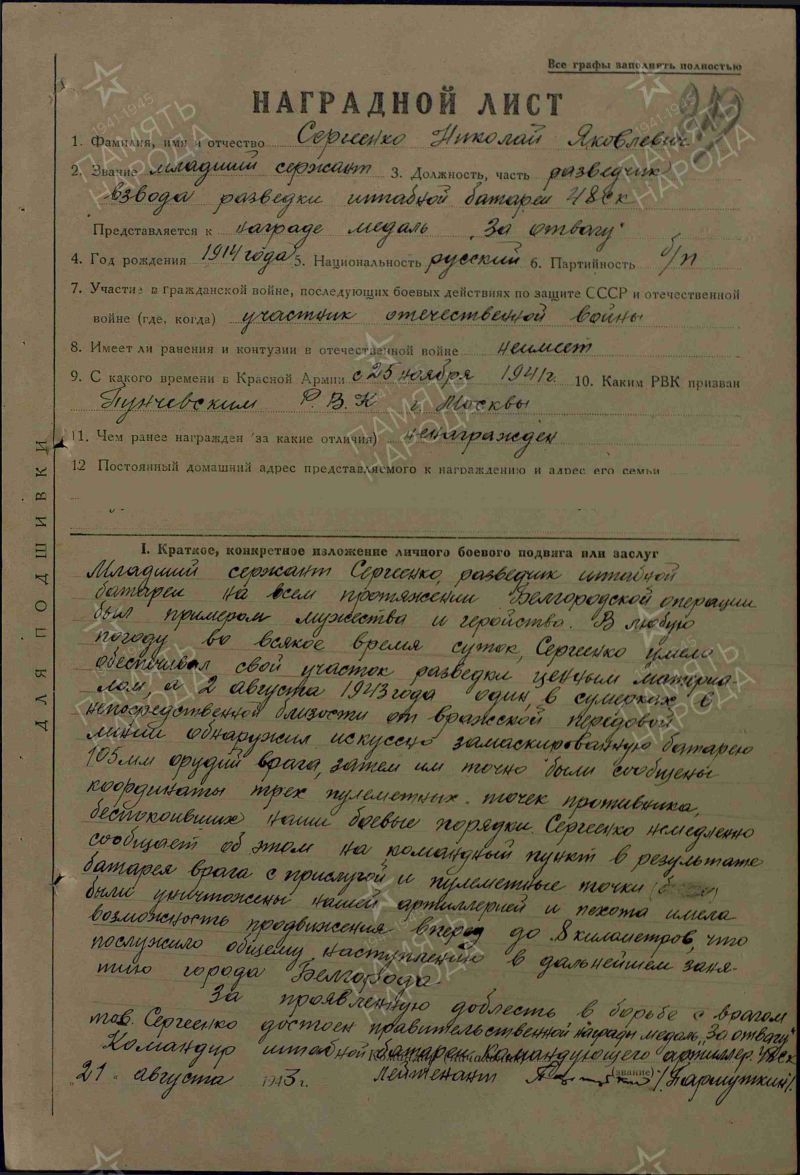 Все графы заполнять полностью
НАГРАДНОЙ ЛИСТ
1. Фамилия, имя и отчество Сергиенко Николай Яковлевич
2. Звание младший сержант 3. Должность, часть разведчик
взвода разведки штабной батареи 48 ск
Представляется к награде медаль „За отвагу"
4. Год рождения 1914 года 5. Национальность русский 6. Партийность б/п
7. Участие в гражданской войне, последующих боевых действиях по защите СССР и отечественной
войне (где, когда) участник отечественной войны
8. Имеет ли ранения и контузии в отечественной войне неимеет
9. С какого времени в Красной Армии с 25 ноября 1941г. 10. Каким РВК призван
Р.В.К г. Москвы
11. Чем ранее награжден (за какие отличия) ненагражден
12 Постоянный домашний адрес представляемого к награждению и адрес его семьи
ДЛЯ ПОДШИВКИ
I. Краткое, конкретное изложение личного боевого подвига или заслуг
Младший сержант Сергиенко, разведчик штабной
батареи на всем протяжении Белгородской операции
был примером мужества и геройства. В любую
погоду во всякое время суток, Сергиенко умело
обеспечивал свой участок разведки ценным материа-
лом, а 2 августа 1943 года один, в сумерках, в
непосредственной близости от вражеской передовой
линии обнаружил искуссно замаскированную батарею
105 мм орудий врага, затем им точно были сообщены
координаты трех пулеметных точек противника,
беспокоивших наши боевые порядки. Сергиенко немедленно
сообщает об этом на командный пункт в результате
батарея врага с прислугой и пулеметные точки
были уничтожены нашей артиллерией и пехота имела
возможность продвижения вперед до 8 километров, что
послужило общему наступлению в дальнейшем заня-
тию города Белгорода.
За проявленную доблесть в борьбе с врагом
тов. Сергиенко достоин правительственной награды медаль „За отвагу"
Командир штабной батареи командующего артиллер. 48 ск
„21" августа 1943г. лейтенант (звание) /Паршуткин/.
ПАМЯТЬ НАРОДА
1941-1945